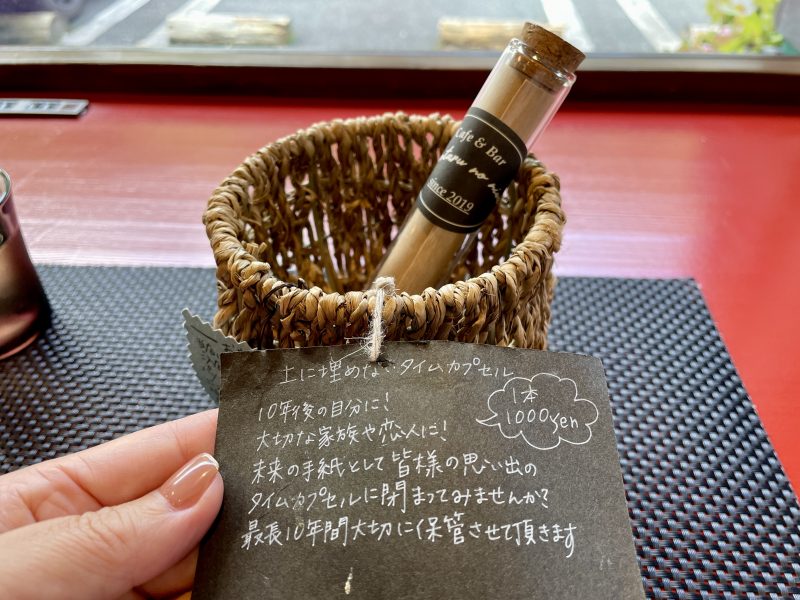 Cafe & Bar
no
since 2019
土に埋めないタイムカプセル
1本
1000yen
10年後の自分に!
大切な家族や恋人に!
未来の手紙として皆様の思い出の
タイムカプセルに閉まってみませんか?
最長10年間大切に保管させて頂きます